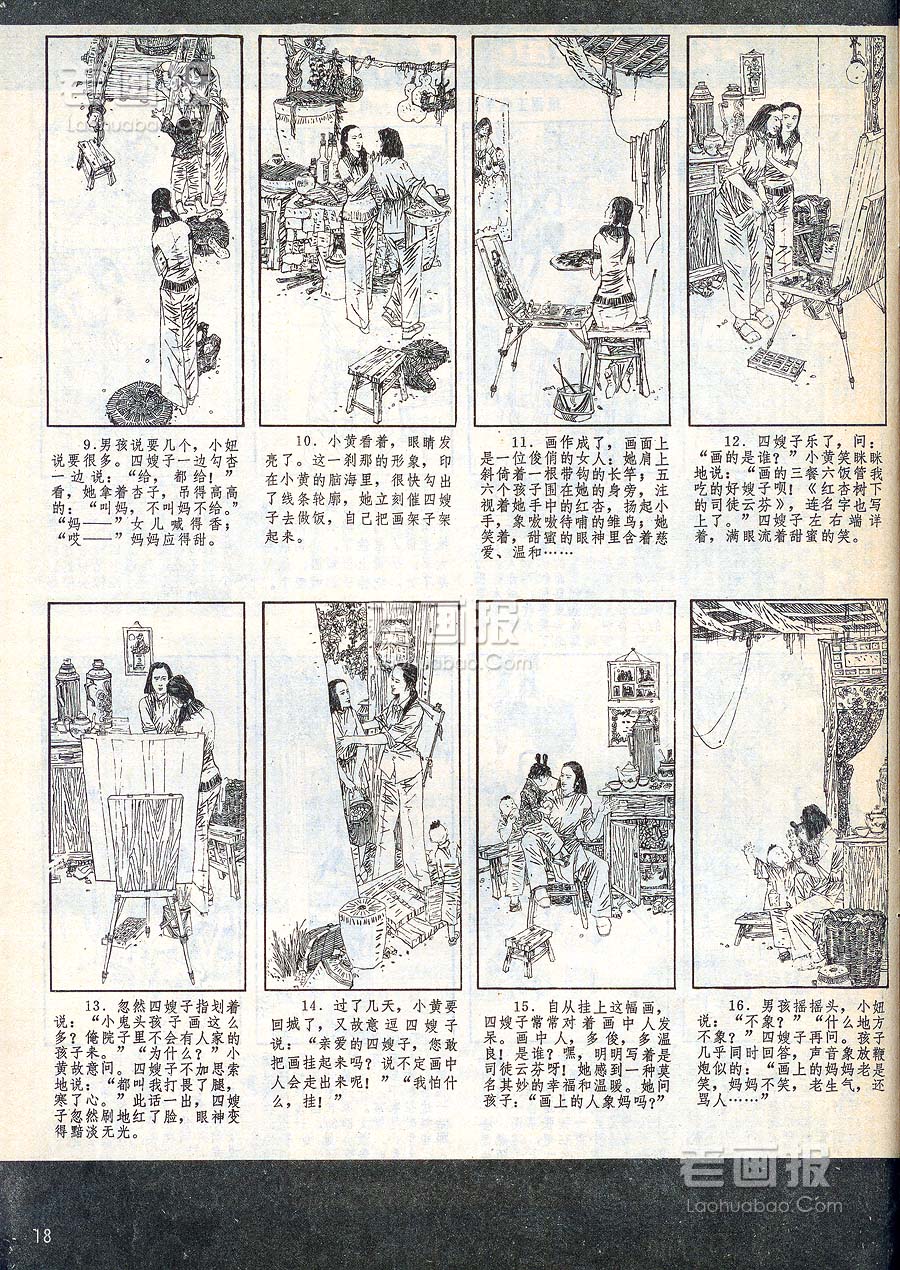 老画报
Laohuabao.Com
9．男孩说要几个，小妞
说要很多。四嫂子一边勾杏
一边说：“给，都给！”
看，她拿着杏子，吊得高高
的：“叫妈，不叫妈不给。”
“妈——”女儿喊得香；
“哎——”妈妈应得甜。
10．小黄看着，眼睛发
亮了。这一刹那的形象，印
在小黄的脑海里，很快勾出
了线条轮廓，她立刻催四嫂
子去做饭，自己把画架子架
起来。
11．画作成了，画面上
是一位俊俏的女人：她肩上
斜倚着一根带钩的长竿；五
六个孩子围在她的身旁，注
视着她手中的红杏，扬起小
手，象嗷嗷待哺的雏鸟；她
笑着，甜蜜的眼神里含着慈
爱、温和……
12．四嫂子乐了，问：
“画的是谁？”小黄笑眯眯
地说：“画的三餐六饭管我
吃的好嫂子呗！《红杏树下
的司徒云芬》，连名字也写
上了。”四嫂子左右端详
着，满眼流着甜蜜的笑。
老画报
Laohuabao.Com
13．忽然四嫂子指划着
说：“小鬼头孩子画这么
多？俺院子里不会有人家的
孩子来。”“为什么？”小
黄故意问。四嫂子不加思索
地说：“都叫我打畏了腿，
寒了心。”此话一出，四嫂
子忽然刷地红了脸，眼神变
得黯淡无光。
14．过了几天，小黄要
回城了，又故意逗四嫂子
说：“亲爱的四嫂子，您敢
把画挂起来吗？说不定画中
人会走出来呢！”“我怕什
么，挂！”
15．自从挂上这幅画，
四嫂子常常对着画中人发
呆。画中人，多俊，多温
良！是谁？嘿，明明写着是
司徒云芬呀！她感到一种莫
名其妙的幸福和温暖。她问
孩子：“画上的人象妈吗？”
16．男孩摇摇头，小妞
说：“不象？”“什么地方
不象？”四嫂子再问。孩子
几乎同时回答，声音象放鞭
炮似的：“画上的妈妈老是
笑，妈妈不笑，老生气，还
骂人……”
老画报
Laohuabao.Com
18